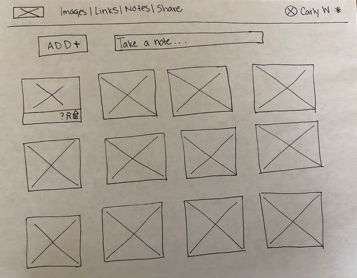 Images | Links | Notes | Share
Carly W *
ADD+
Take a note...
?R